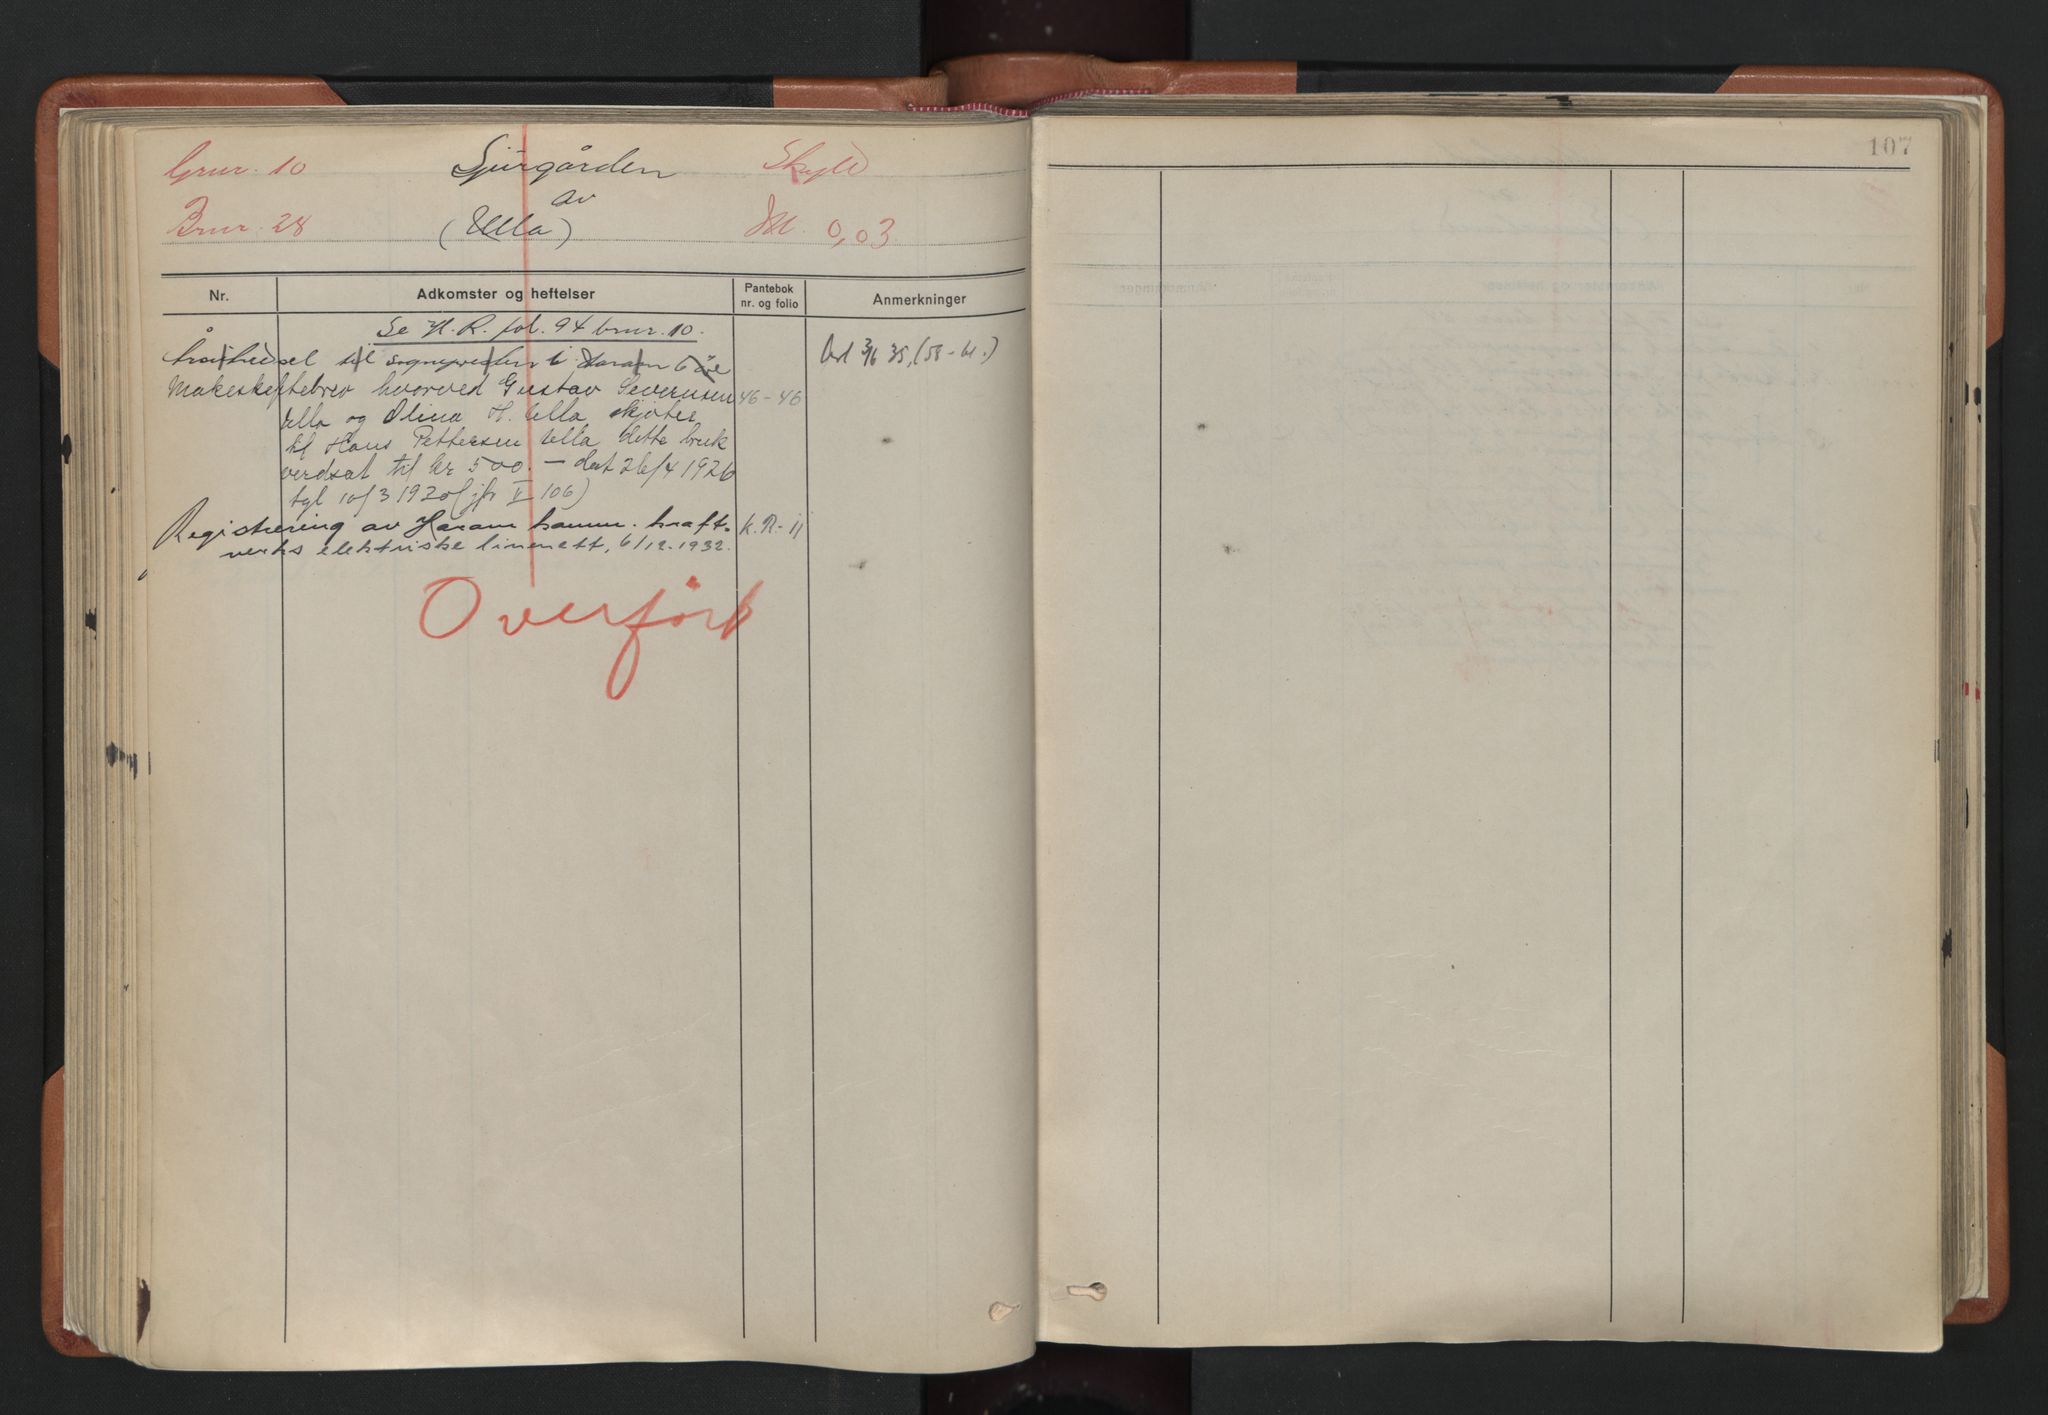 Gnr. 10 Sjurgården Skyld
av
Bnr. 28 (Ulla) M. 0,03.
Nr. Adkomster og heftelser Pantebok nr. og folio Anmerkninger
Se H. R. fol. 94 bnr. 10.
til sognepresten i Haram 6 öre 3/6 35, (58-61.)
Makeskiftebrev hvorved Gustav Severinsen 46-46
Ulla og Olina H. Ulla skjöter
til Hans Pettersen Ulla dette bruk
verdsat til kr 500.- dat 26/4 1926
tgl 10/3 1920 (jfr V 106)
Registrering av Haram komm. kraft- K.R-11
verks elektriske linenett, 6/12.1932.
Overført
107